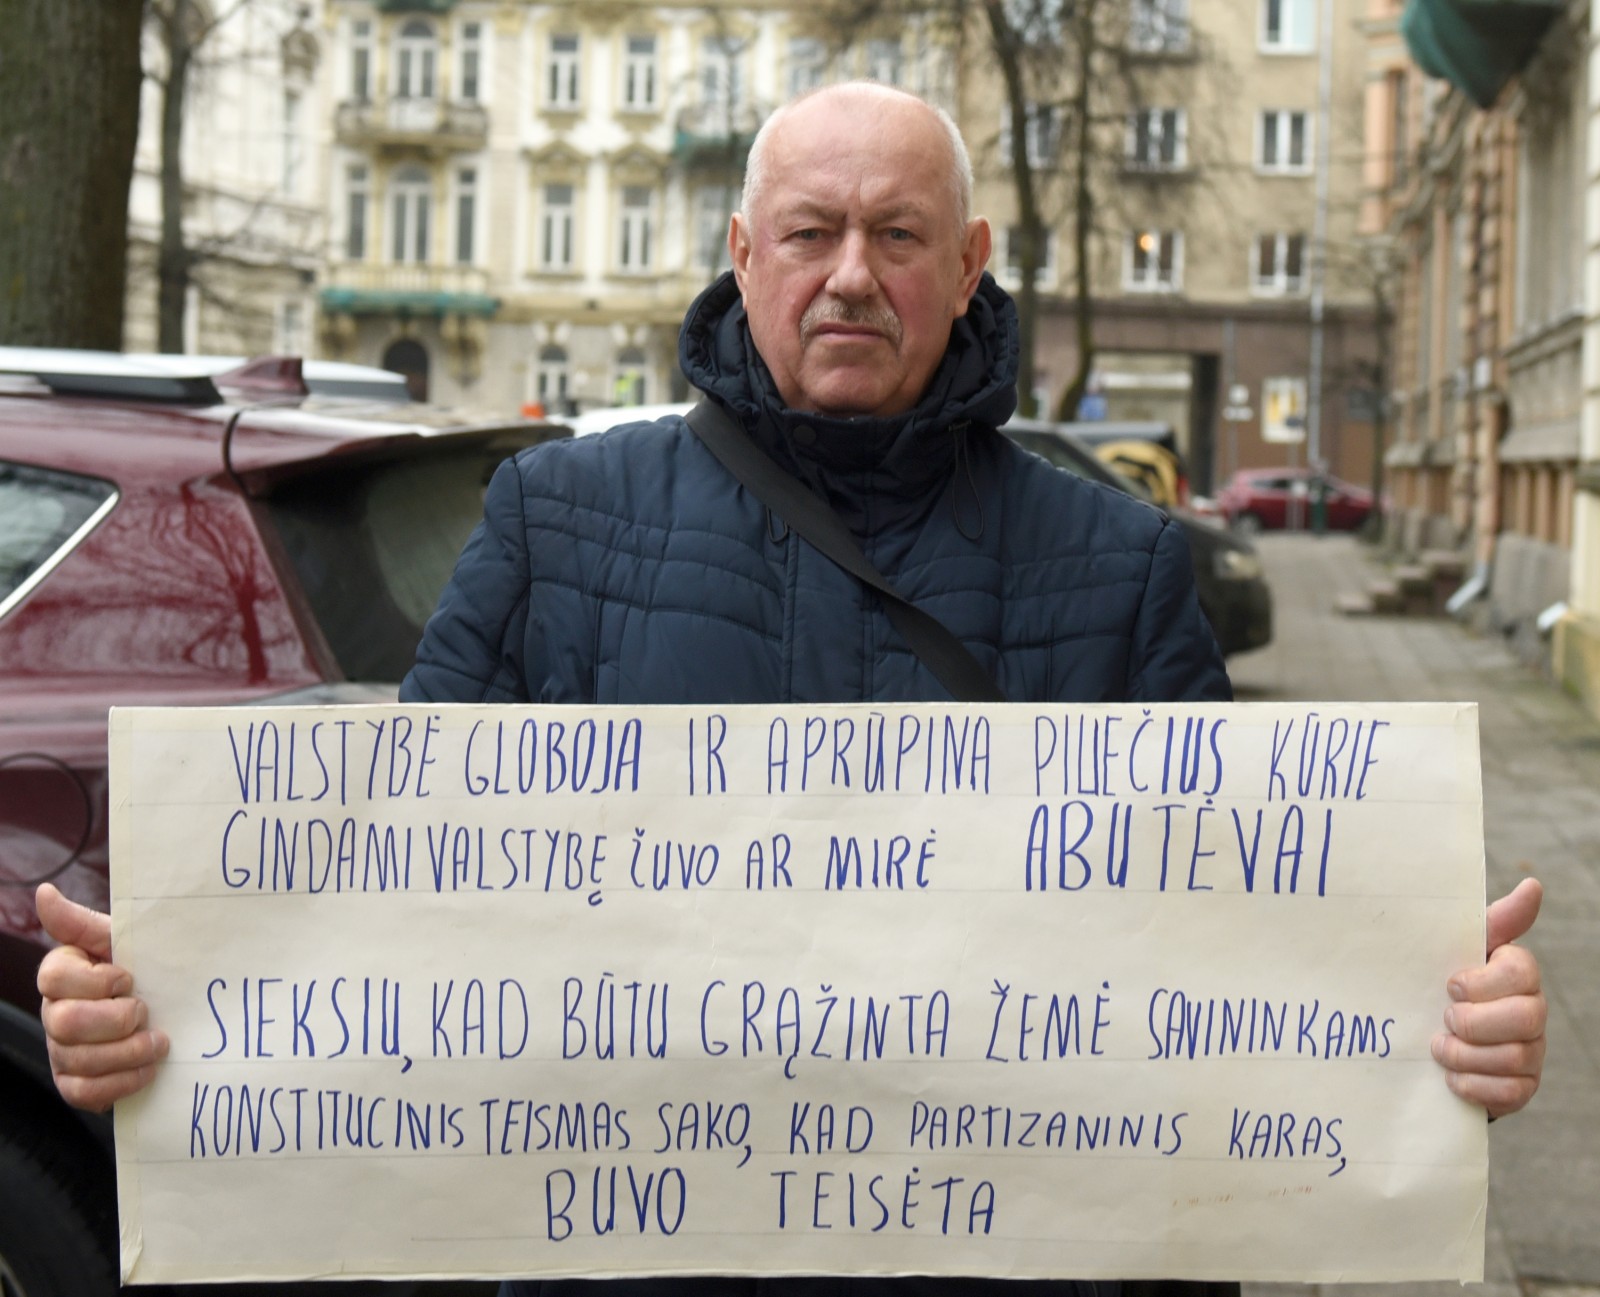 VALSTYBĖ GLOBOJA IR APRŪPINA PILIEČIUS KŪRIE
GINDAMI VALSTYBĘ ŽUVO AR MIRĖ ABU TĖVAI
SIEKSIU, KAD BŪTU GRĄŽINTA ŽEMĖ SAVININKAMS
KONSTITUCINIS TEISMAS SAKO, KAD PARTIZANINIS KARAS,
BUVO TEISĖTA